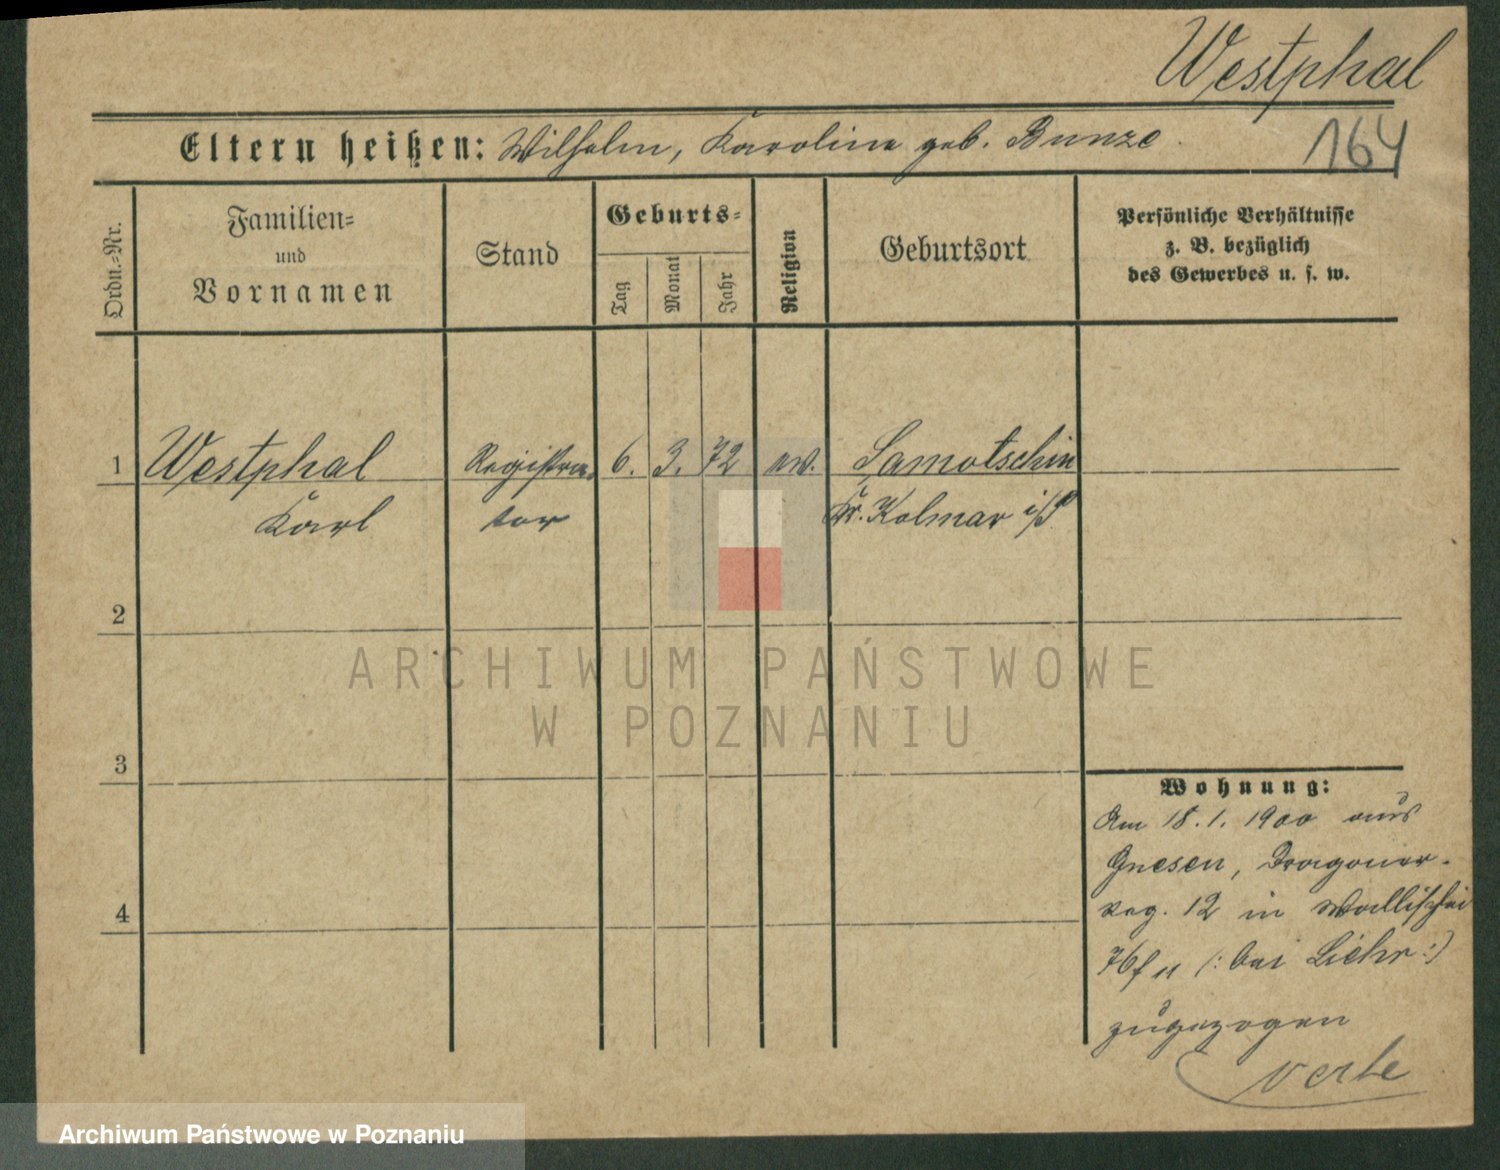 Westphal
164
Eltern heißen: Wilhelm, Karoline geb. Bunze.
Ordn.-Nr.
Familien-
und
Vornamen
Stand
Geburts-
Tag
Monat
Jahr
Religion
Geburtsort
Persönliche Verhältnisse
z. B. bezüglich
des Gewerbes u. s. w.
1 Westphal Registra- 6. 3. 72 ev. Samotschin
Karl tor Kr. Kolmar i/P
2
3
4
Wohnung:
Am 18.1.1900 aus
Gnesen, Dragoner-
Reg. 12 in Wallischei
76 (: bei Liehr :)
zugezogen
ARCHIWUM PAŃSTWOWE
W POZNANIU
Archiwum Państwowe w Poznaniu